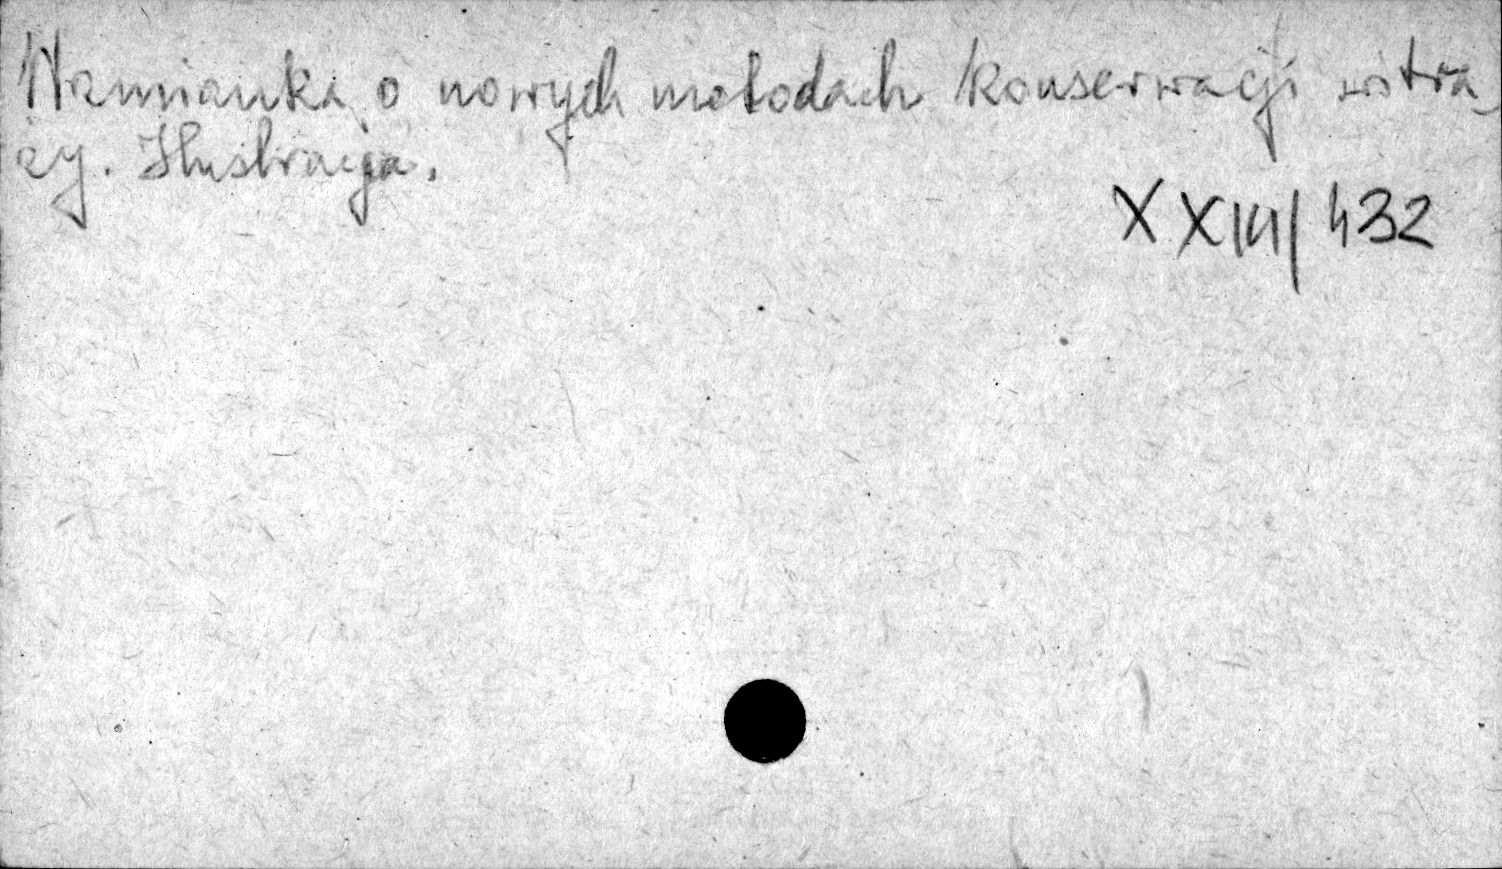 Wzmianka o nowych metodach konserwacji witra-
ży. Ilustracja.
XXIII/432